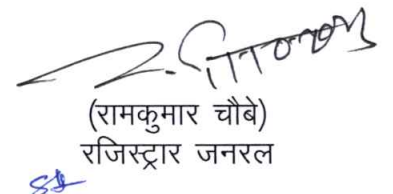 (रामकुमार चौबे)
रजिस्ट्रार जनरल